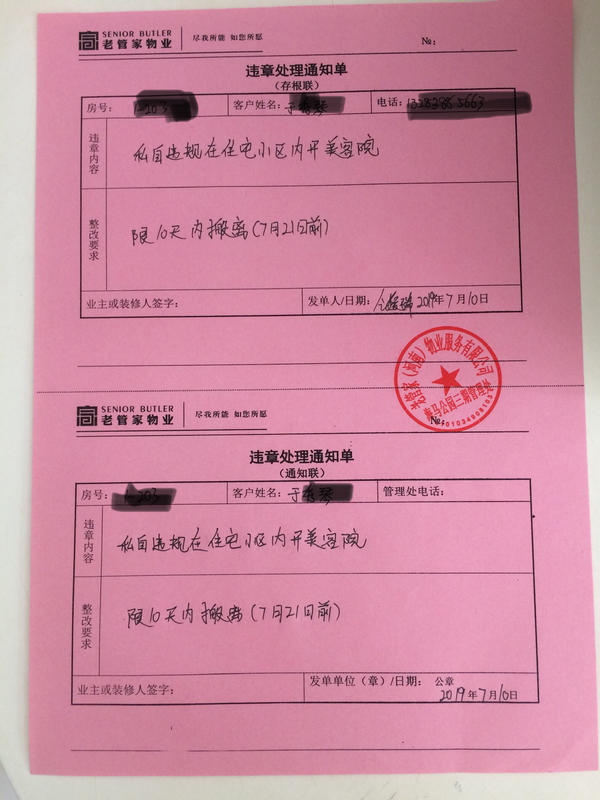 SENIOR BUTLER
老管家物业
尽我所能 如您所愿
№:
违章处理通知单
（存根联）
房号: 客户姓名: 于 琴 电话:
违章内容
私自违规在住宅小区内开美容院
整改要求
限10天内搬离(7月21日前)
业主或装修人签字: 发单人/日期: 2019年7月10日
老管家（河南）物业服务有限公司
海马公园三期管理处
SENIOR BUTLER
老管家物业
尽我所能 如您所愿
№:
违章处理通知单
（通知联）
房号: 客户姓名: 于 琴 管理处电话:
违章内容
私自违规在住宅小区内开美容院
整改要求
限10天内搬离(7月21日前)
业主或装修人签字: 发单单位（章）/日期: 公章
2019年7月10日